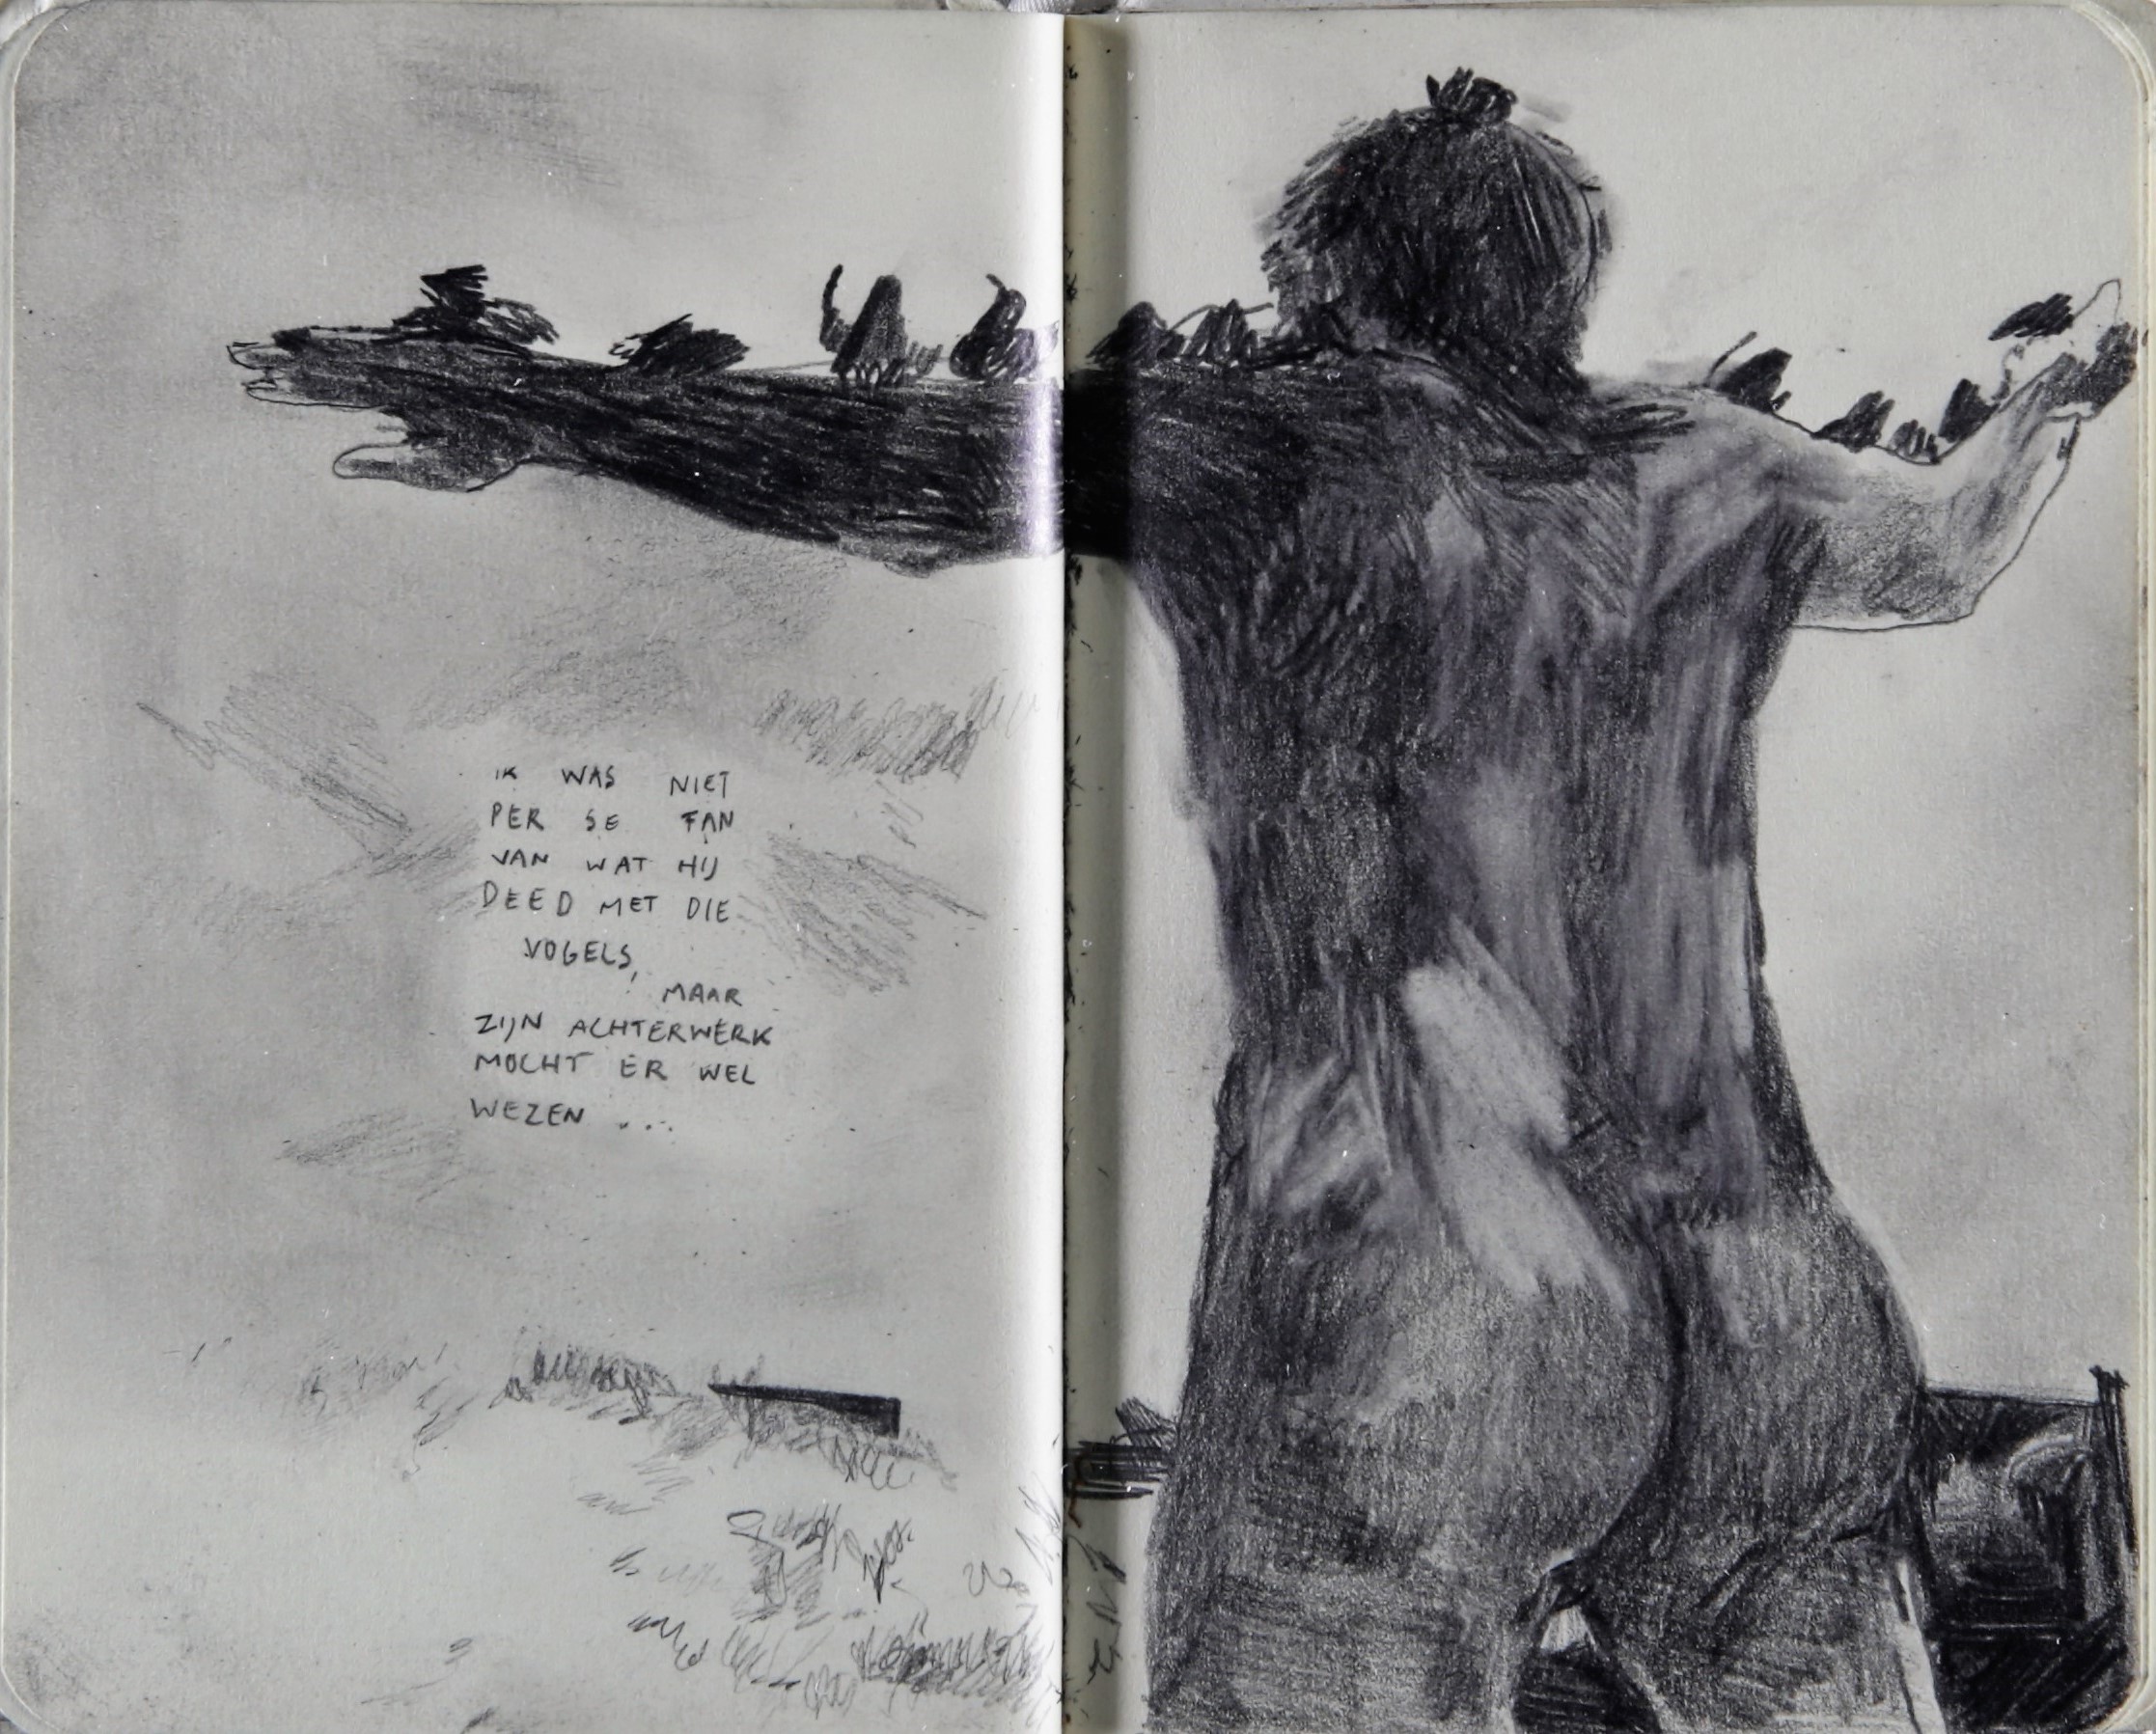 IK WAS NIET
PER SE FAN
VAN WAT HIJ
DEED MET DIE
VOGELS,
MAAR
ZIJN ACHTERWERK
MOCHT ER WEL
WEZEN ...